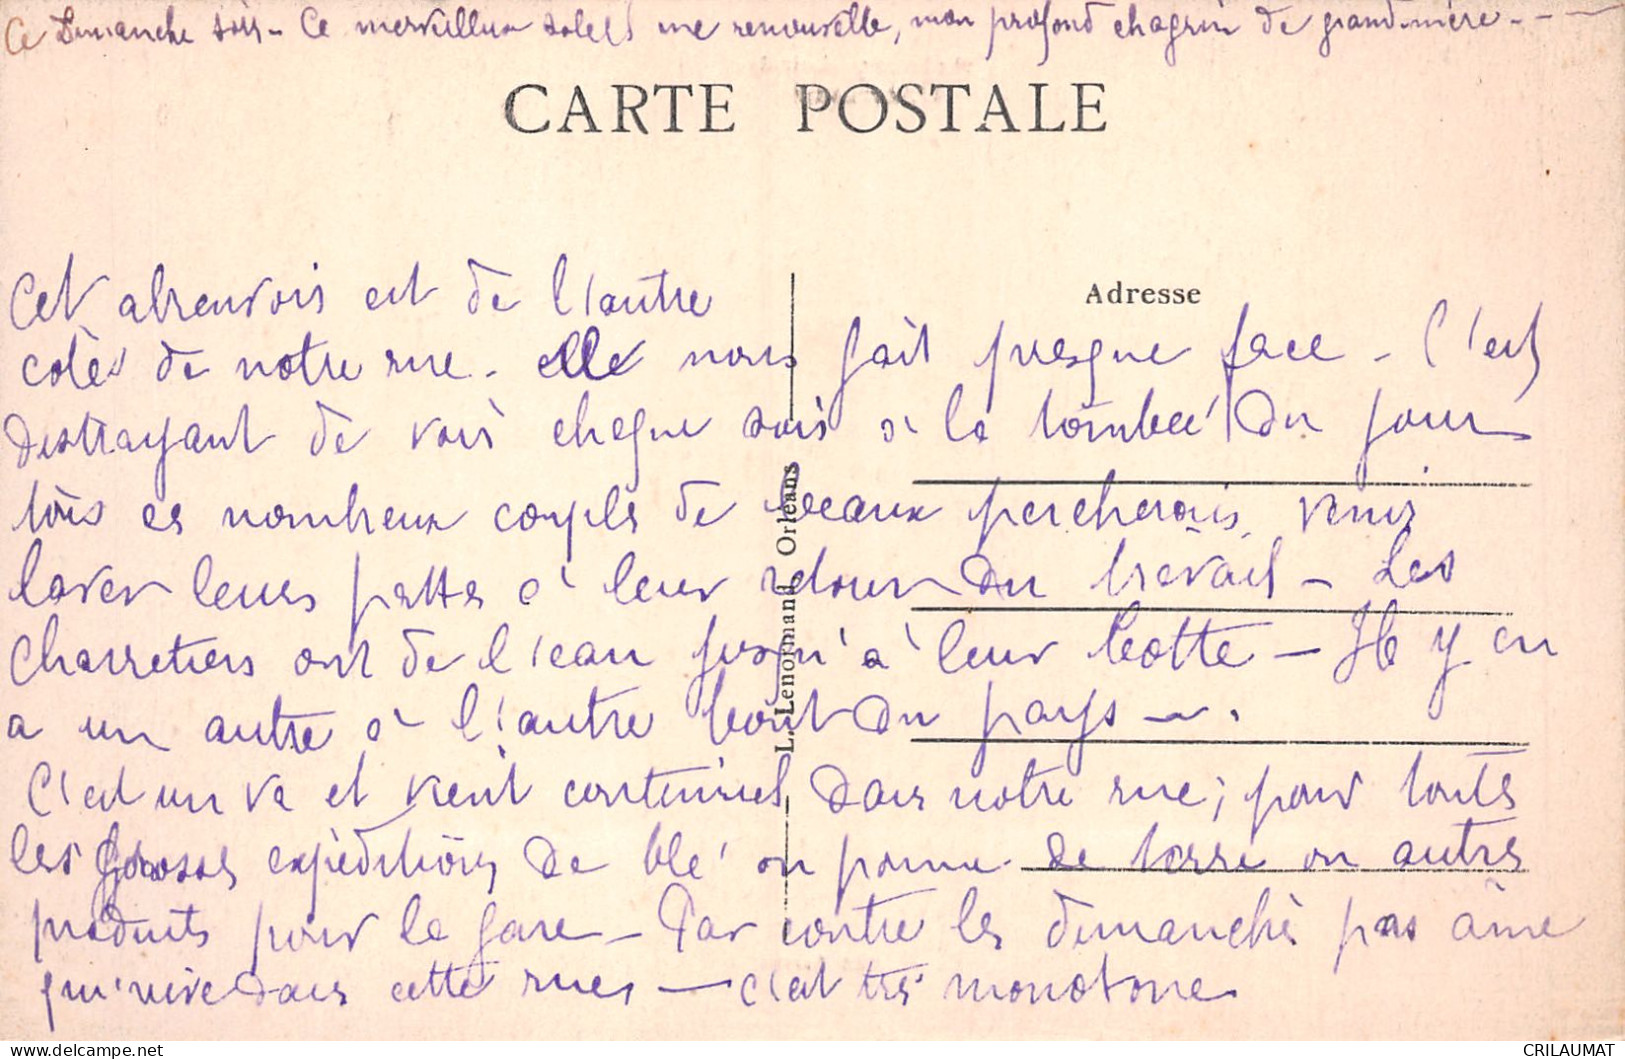 Ce Dimanche soir - Ce merveilleux soleil me renouvelle, mon profond chagrin de grandmère - - -
CARTE POSTALE
Adresse
Cet abreuvoir est de l'autre
côté de notre rue. elle nous fait presque face - C'est
distrayant de voir chaque soir à la tombée du jour
tous ces nombreux couples de beaux percherons, venir
laver leurs pattes à leur retour du travail - Les
charretiers ont de l'eau jusqu'à leur botte - Il y en
a un autre à l'autre bout du pays -
C'est un va et vient continuel dans notre rue; pour toutes
les grosses expéditions de blé ou pomme de terre ou autres
produits pour la gare - Par contre les dimanches pas âme
qui vive dans cette rue - c'est très monotone
L. Lenormand, Orléans
CRILAUMAT